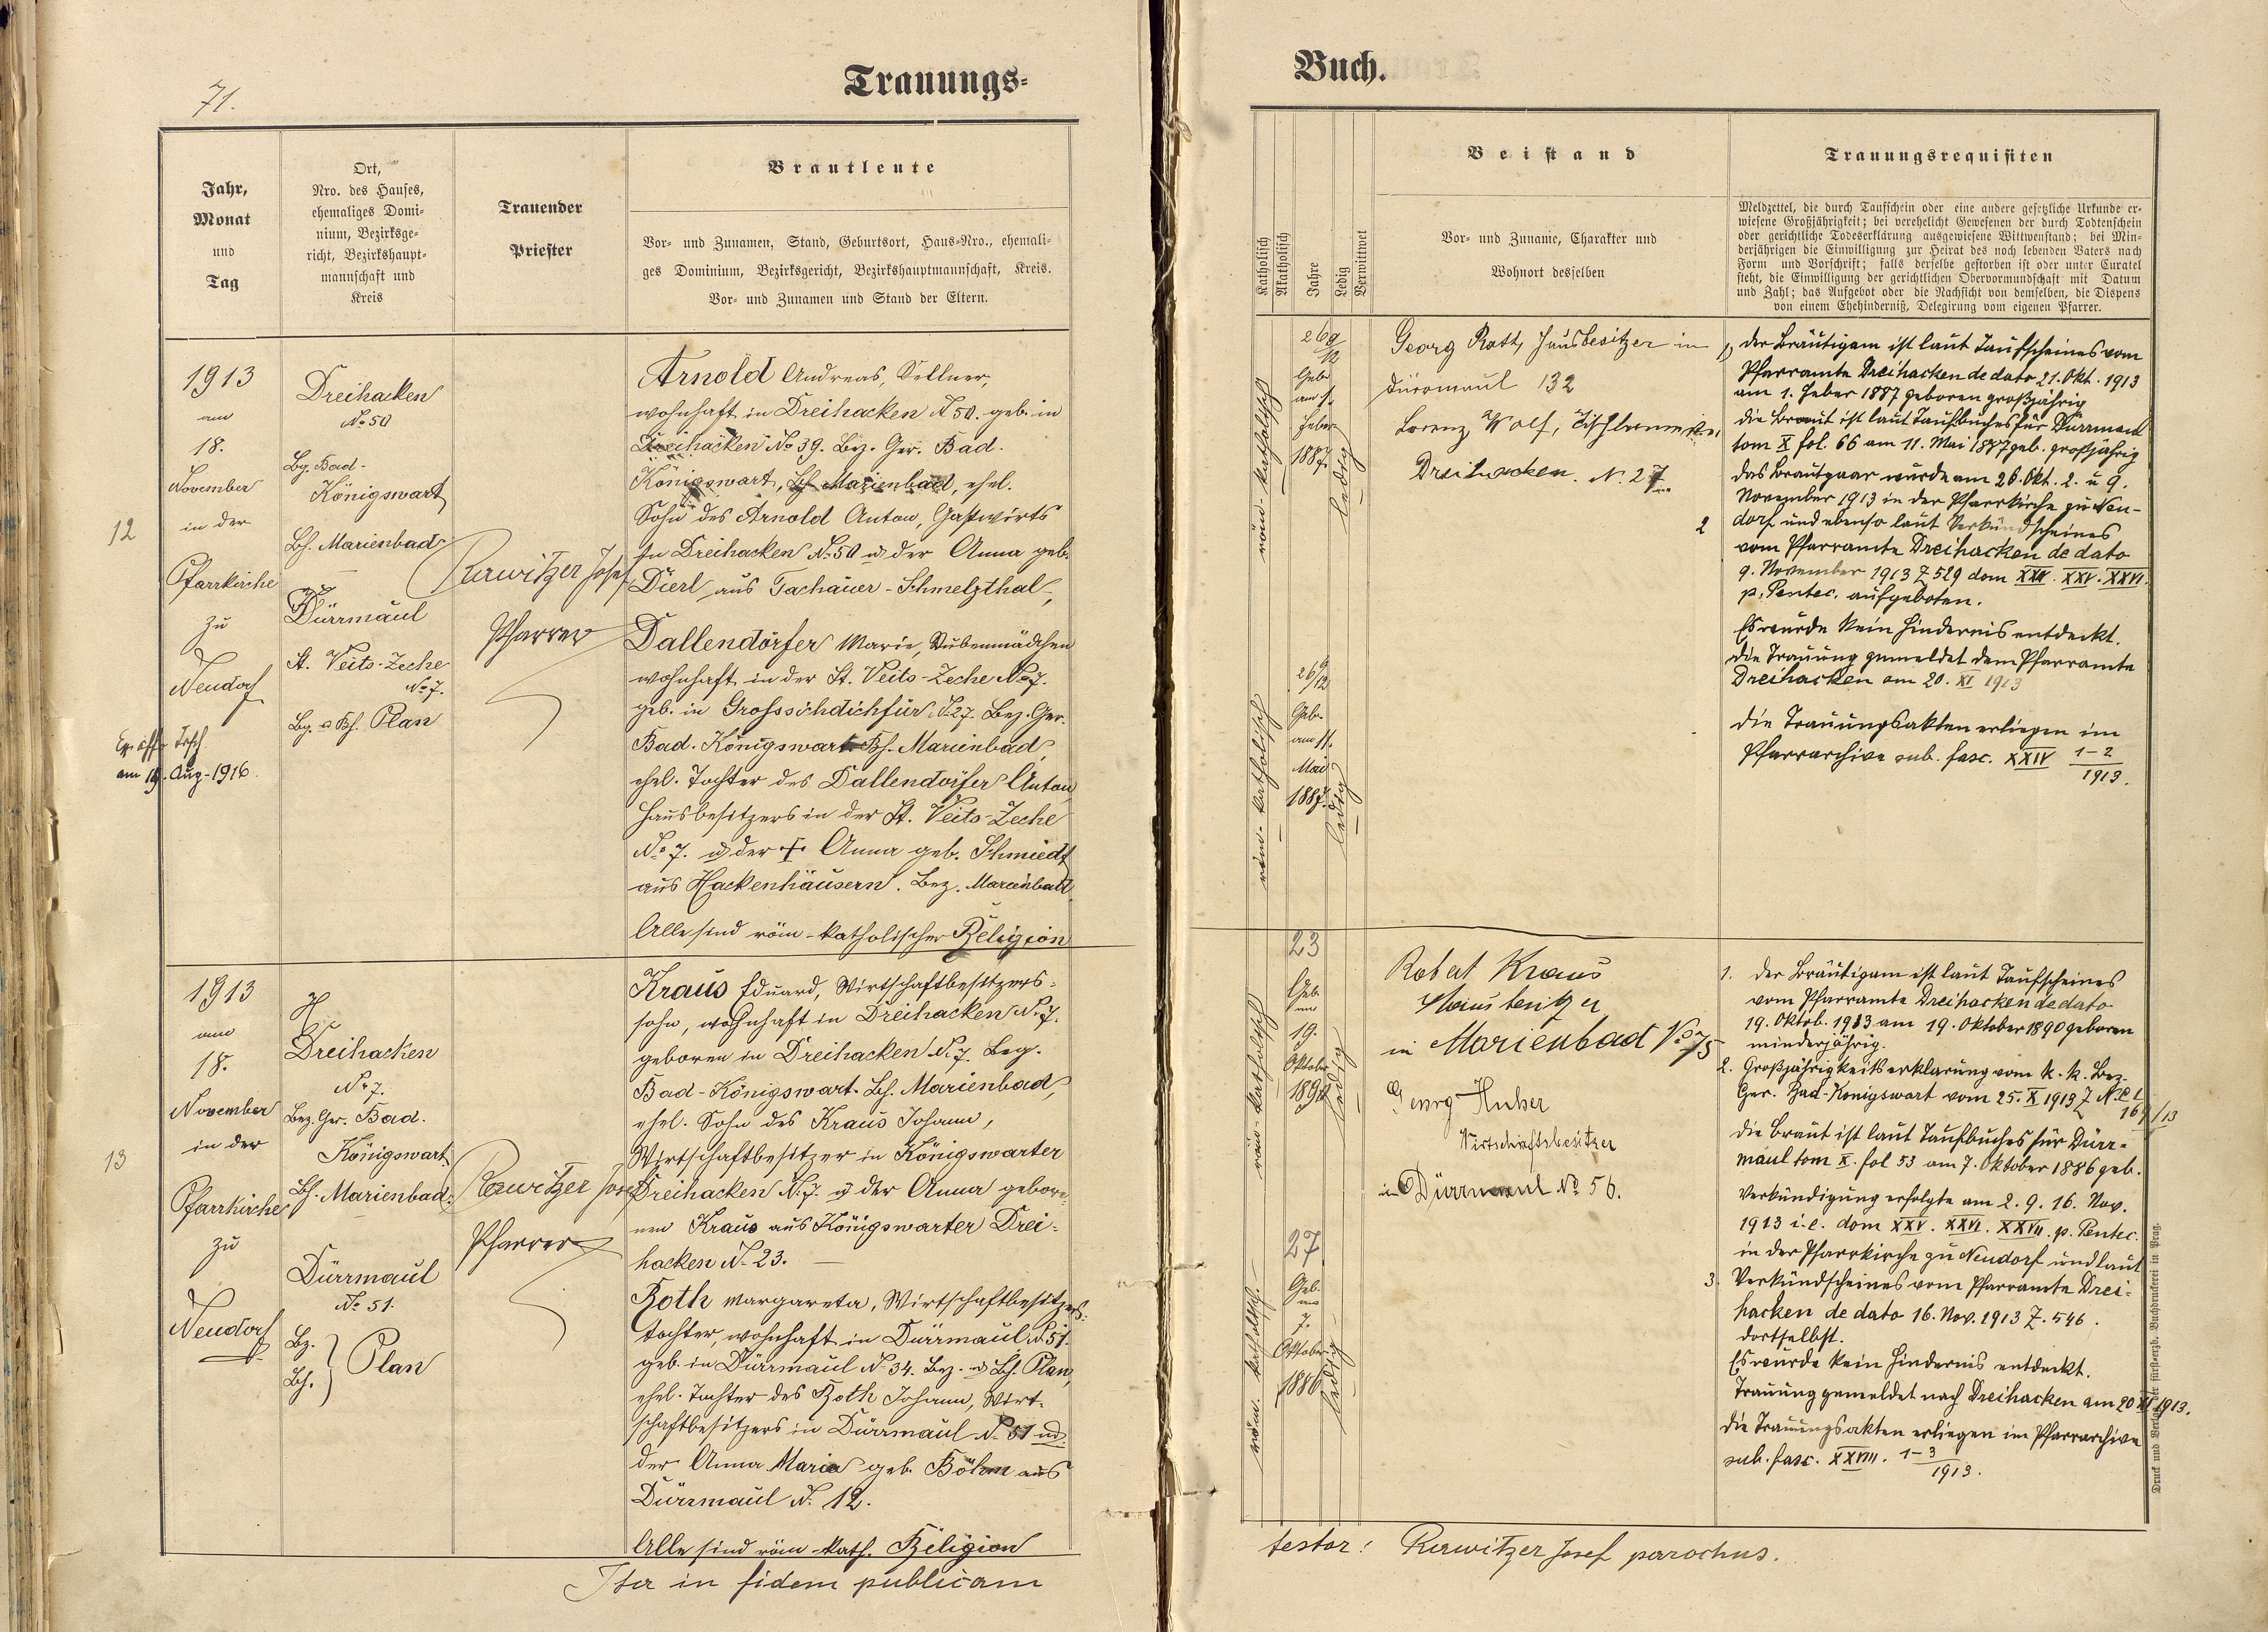 71.
Trauungs-
Jahr,
Monat
und
Tag
Ort,
Nro. des Hauses,
ehemaliges Domi-
nium, Bezirksge-
richt, Bezirkshaupt-
mannschaft und
Kreis
Trauender
Priester
Brautleute
Vor- und Zunamen, Stand, Geburtsort, Haus-Nro., ehemali-
ges Dominium, Bezirksgericht, Bezirkshauptmannschaft, Kreis.
Vor- und Zunamen und Stand der Eltern.
12
1913
am
18.
November
in der
Pfarrkirche
zu
Neudorf
am 19. Aug. 1916
Dreihacken
No 50
Bg. Bad-
Königswart
Bh. Marienbad
Dürrmaul
St. Veits-Zeche
No 7.
Bg. u Bh. Plan
Rerwitzer Josef
Pfarrer
Arnold Andreas, Kellner,
wohnhaft in Dreihacken N 50. geb. in
Dreihacken No 39. Bez. Ger. Bad.
Königswart, Bh Marienbad, ehel.
Sohn des Arnold Anton, Gastwirts
in Dreihacken No 50 u. der Anna geb.
Dierl aus Tachauer-Schmelzthal,
Dallendörfer Marie, Stubenmädchen
wohnhaft in der St. Veits-Zeche No 7.
geb. in Grosssichdichfür, No 27. Bez. Ger.
Bad. Königswart Bh. Marienbad,
ehel. Tochter des Dallendörfer Anton
Hausbesitzers in der St. Veits-Zeche
No 7. u der + Anna geb. Schmiedt
aus Hackenhäusern. Bez. Marienbad.
Alle sind röm-katholischer Religion
13
1913
am
18.
November
in der
Pfarrkirche
zu
Neudorf
Dreihacken
No 7.
Bez. Ger. Bad.
Königswart
Bh. Marienbad
Dürrmaul
No 51.
Bz.
Bh. Plan
Rerwitzer Josef
Pfarrer
Kraus Eduard, Wirtschaftbesitzers-
sohn, wohnhaft in Dreihacken No 7.
geboren in Dreihacken No 7. Bzg.
Bad-Königswart. Bh. Marienbad,
ehel. Sohn des Kraus Johann,
Wirtschaftbesitzer in Königswarter
Dreihacken No 7. u der Anna gebore-
nen Kraus aus Königswarter Drei-
hacken No 23.
Roth Margareta, Wirtschaftbesitzers-
tochter, wohnhaft in Dürrmaul No 51.
geb. in Dürrmaul No 34. Bez. u Bh. Plan,
ehel. Tochter des Roth Johann, Wirt-
schaftbesitzers in Dürrmaul No 51 und
der Anna Maria geb. Böhm aus
Dürrmaul No 12.
Alle sind röm-kath. Religion
Ita in fidem publicam
Buch.
Katholisch
Akatholisch
Jahre
Ledig
Verwittwet
Beistand
Vor- und Zuname, Charakter und
Wohnort desselben
Trauungsrequisiten
Meldzettel, die durch Taufschein oder eine andere gesetzliche Urkunde er-
wiesene Großjährigkeit; bei verehelicht Gewesenen der durch Todtenschein
oder gerichtliche Todeserklärung ausgewiesene Wittwenstand; bei Min-
derjährigen die Einwilligung zur Heirat des noch lebenden Vaters nach
Form und Vorschrift; falls derselbe gestorben ist oder unter Curatel
steht, die Einwilligung der gerichtlichen Obervormundschaft mit Datum
und Zahl; das Aufgebot oder die Nachsicht von demselben, die Dispens
von einem Ehehinderniß, Delegirung vom eigenen Pfarrer.
röm-katholisch
26 9/12
Geb.
am 1.
Feber
1887.
ledig
röm-katholisch
26 6/12
Geb.
am 11.
Mai
1887.
ledig
Georg Roth, Hausbesitzer in
Dürrmaul 132
Lorenz Wolf, Tischlermeister
Dreihacken. No 27
1) Der Bräutigam ist laut Taufscheines vom
Pfarramte Dreihacken de dato 21. Okt. 1913
am 1. Feber 1887 geboren großjährig
Die Braut ist laut Taufbuches für Dürrmaul
tom X fol. 66 am 11. Mai 1887 geb. großjährig
Das Brautpaar wurde am 26. Okt. 2. u 9.
November 1913 in der Pfarrkirche zu Neu-
2 dorf und ebenso laut Verkündscheines
vom Pfarramte Dreihacken de dato
9. November 1913 Z 529 dom XXIV. XXV. XXVI.
p. Pentec. aufgeboten.
Es wurde kein Hindernis entdeckt.
Die Trauung gemeldet dem Pfarramte
Dreihacken am 20. XI 1913
Die Trauungsakten erliegen im
Pfarrarchive sub. fasc. XXIV 1-2
1913.
röm-katholisch
23
Geb.
am
19.
Oktober
1890
ledig
röm. katholisch.
27
Geb.
am
7.
Oktober
1886
ledig
Robert Kraus
Hausbesitzer
in Marienbad No 75
Georg Huber
Wirtschaftsbesitzer
in Dürrmaul No 56.
1. Der Bräutigam ist laut Taufscheines
vom Pfarramte Dreihacken de dato
19. Oktob. 1913 am 19. Oktober 1890 geboren
minderjährig.
2. Großjährigkeitserklärung vom k. k. Bez.
Ger. Bad-Königswart vom 25. X 1913 Z
Die Braut ist laut Taufbuches für Dürr-
maul tom X. fol 53 am 7. Oktober 1886 geb.
Verkündigung erfolgte am 2. 9. 16. Nov.
1913 i. e. dom XXV. XXVI. XXVII. p. Pentec.
in der Pfarrkirche zu Neudorf und laut
3. Verkündscheines vom Pfarramte Drei-
hacken de dato 16. Nov. 1913 Z. 546.
dortselbst.
Es wurde kein Hindernis entdeckt.
Trauung gemeldet nach Dreihacken am 20 XI 1913.
Die Trauungsakten erliegen im Pfarrarchive
sub. fasc. XXVIII. 1-3
1913.
Druck und Verlag der fürsterzb. Buchdruckerei in Prag.
testor: Rerwitzer Josef parochus.